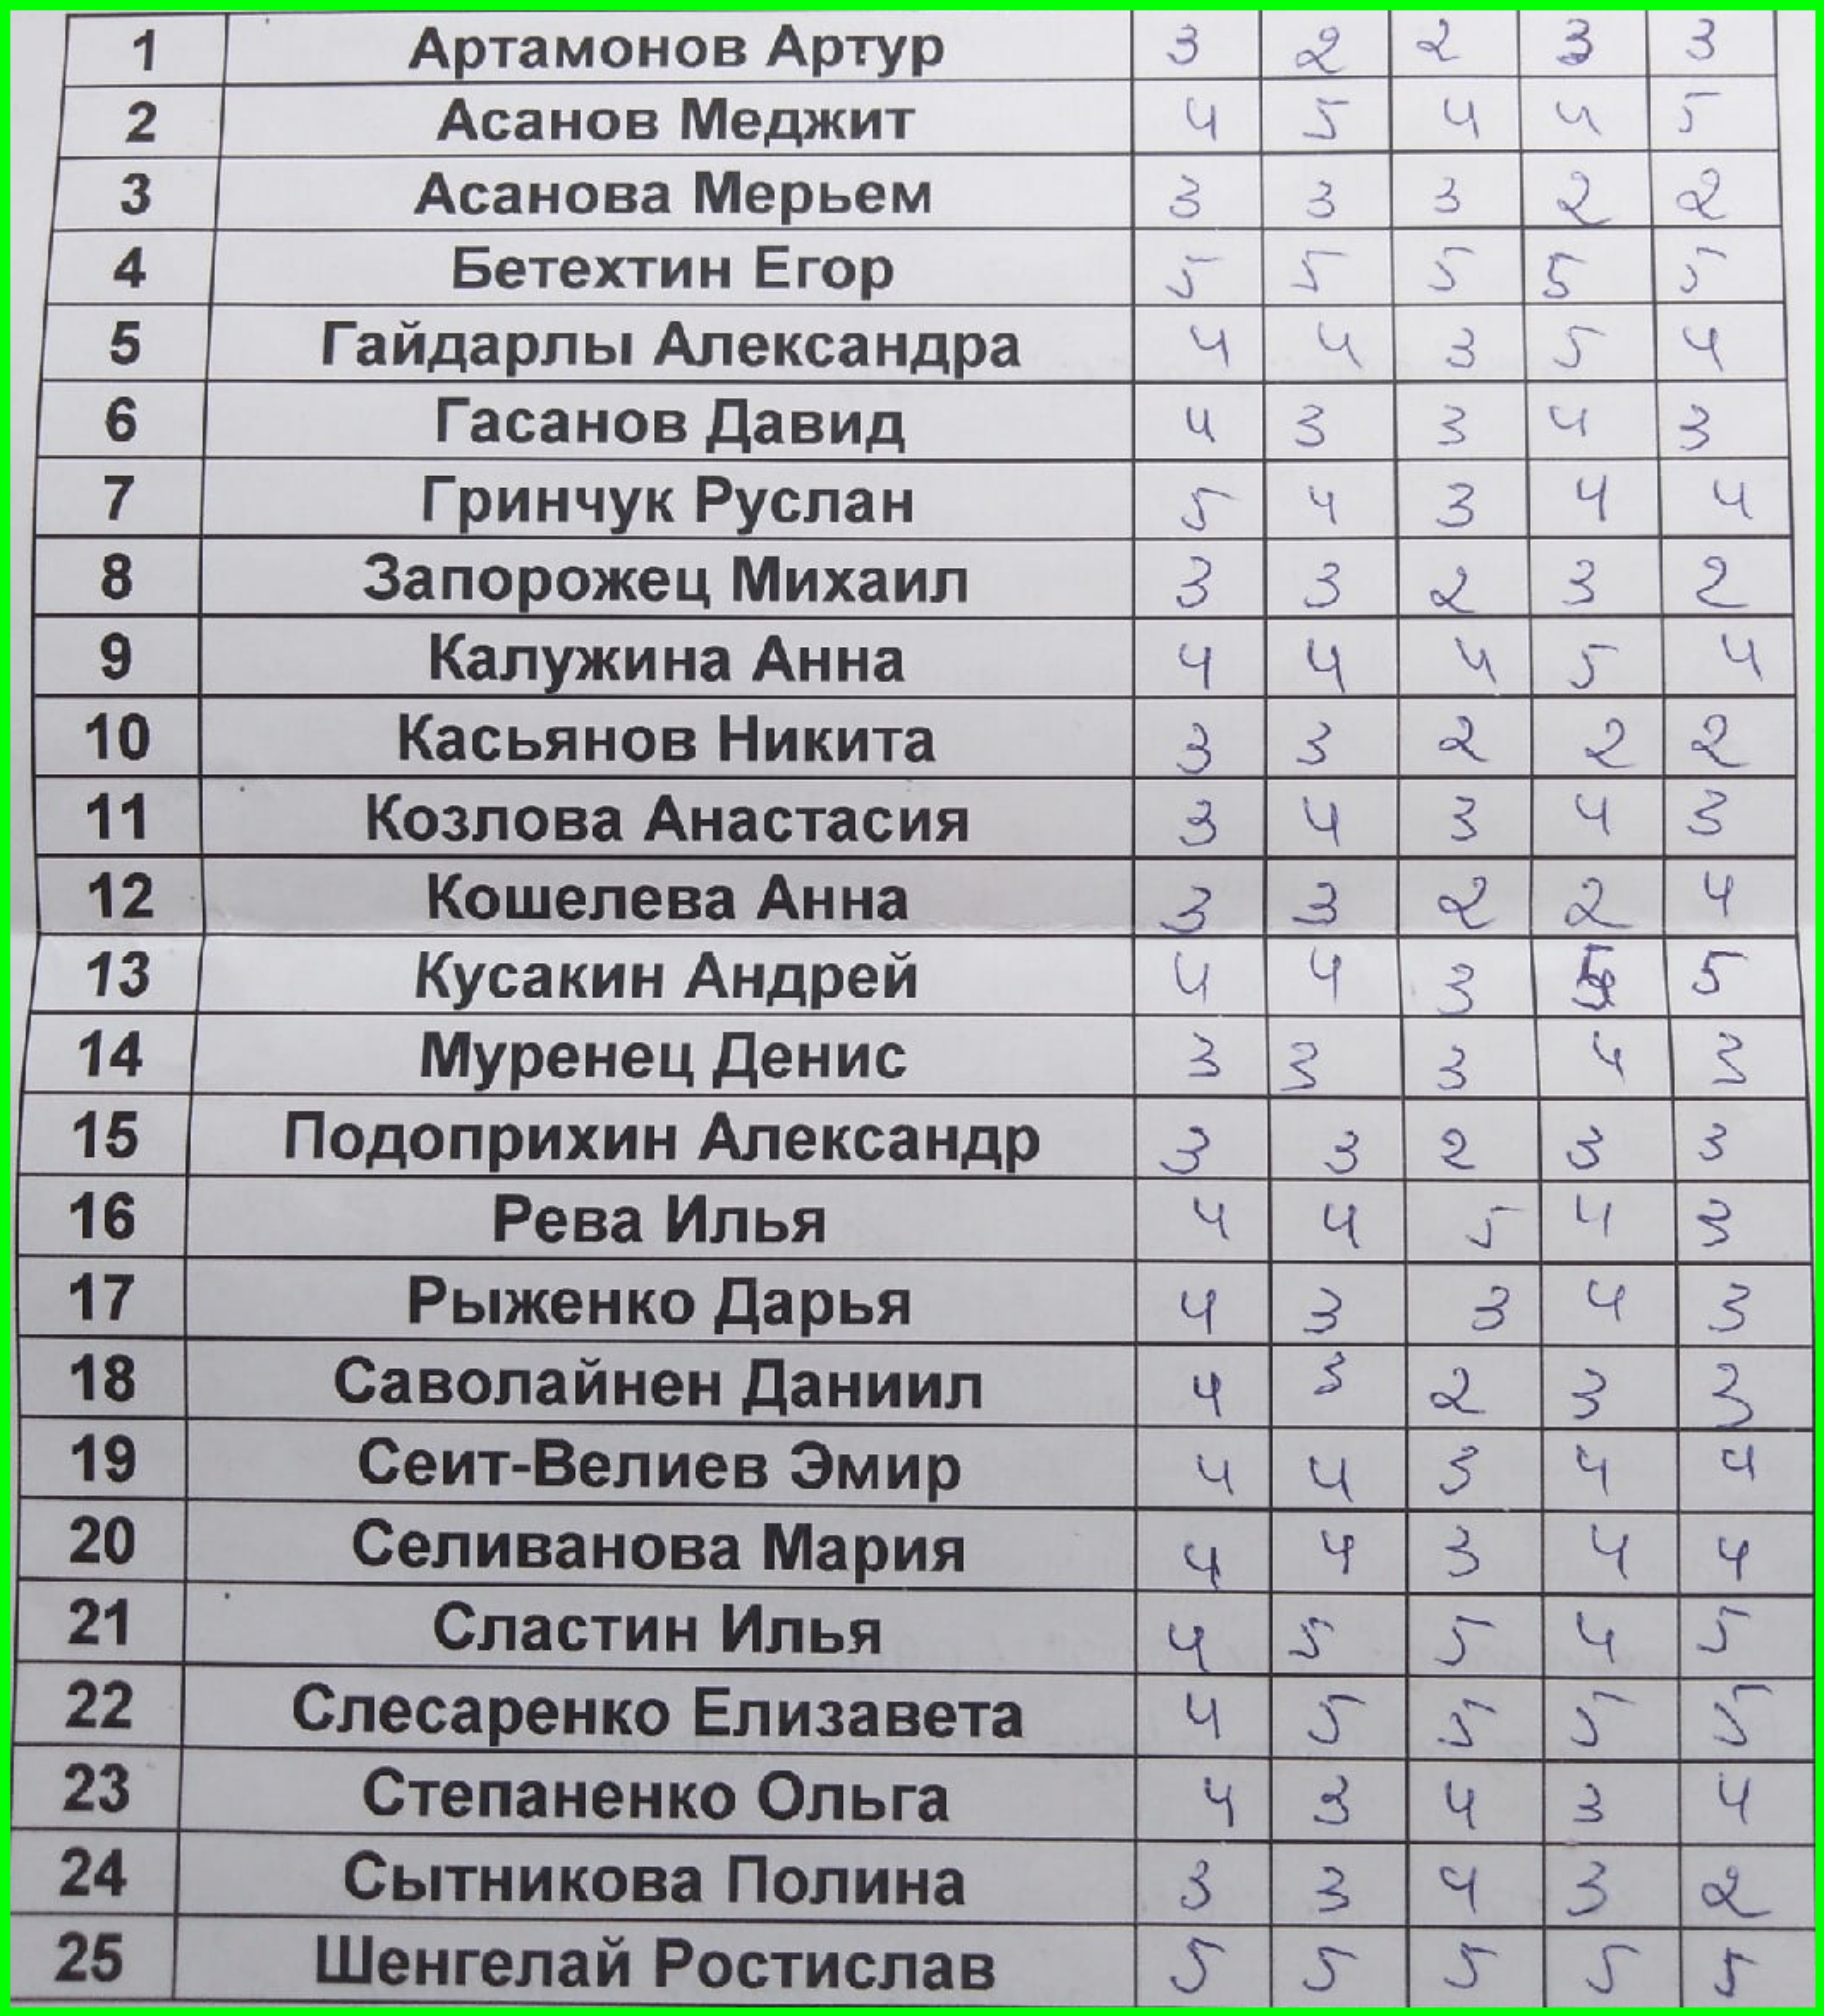 1 Артамонов Артур 3 2 2 3 3
2 Асанов Меджит 4 5 4 4 5
3 Асанова Мерьем 3 3 3 2 2
4 Бетехтин Егор 5 5 5 5 5
5 Гайдарлы Александра 4 4 3 5 4
6 Гасанов Давид 4 3 3 4 3
7 Гринчук Руслан 5 4 3 4 4
8 Запорожец Михаил 3 3 2 3 2
9 Калужина Анна 4 4 4 5 4
10 Касьянов Никита 3 3 2 2 2
11 Козлова Анастасия 3 4 3 4 3
12 Кошелева Анна 3 3 2 2 4
13 Кусакин Андрей 4 4 3 5 5
14 Муренец Денис 3 3 3 4 3
15 Подоприхин Александр 3 3 2 3 3
16 Рева Илья 4 4 5 4 3
17 Рыженко Дарья 4 3 3 4 3
18 Саволайнен Даниил 4 3 2 3 3
19 Сеит-Велиев Эмир 4 4 3 4 4
20 Селиванова Мария 4 4 3 4 4
21 Сластин Илья 4 5 5 4 5
22 Слесаренко Елизавета 4 5 5 5 5
23 Степаненко Ольга 4 3 4 3 4
24 Сытникова Полина 3 3 4 3 2
25 Шенгелай Ростислав 5 5 5 5 5